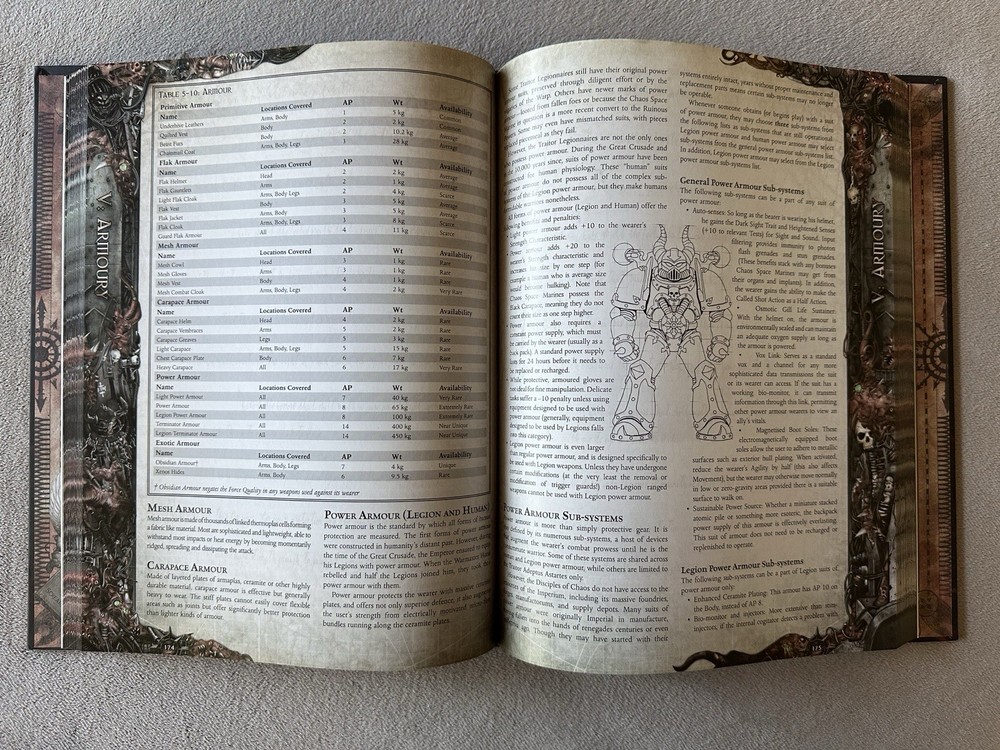 V: ARMOURY
TABLE 5-10: ARMOUR
Primitive Armour
Name Locations Covered AP Wt Availability
Underhive Leathers Arms, Body 1 5 kg Common
Quilted Vest Body 2 2 kg Common
Beast Furs Body 2 10.2 kg Average
Chainmail Coat Arms, Body, Legs 1 28 kg Average
Flak Armour
Name Locations Covered AP Wt Availability
Flak Helmet Head 2 2 kg Average
Flak Gauntlets Arms 2 1 kg Average
Light Flak Cloak Arms, Body, Legs 2 4 kg Scarce
Flak Vest Body 1 5 kg Average
Flak Jacket Arms, Body 5 kg Average
Flak Cloak Arms, Body, Legs 8 kg Scarce
Guard Flak Armour All 4 11 kg Scarce
Mesh Armour
Name Locations Covered AP Wt Availability
Mesh Cowl Head 1 kg Rare
Mesh Gloves Arms 1 kg Rare
Mesh Vest Body 4 1 kg Rare
Mesh Combat Cloak Arms, Body, Legs 4 2 kg Very Rare
Carapace Armour
Name Locations Covered AP Wt Availability
Carapace Helm Head 4 2 kg Rare
Carapace Vembraces Arms 5 2 kg Rare
Carapace Greaves Legs 5 3 kg Rare
Light Carapace Arms, Body, Legs 5 15 kg Rare
Chest Carapace Plate Body 6 7 kg Rare
Heavy Carapace All 6 17 kg Very Rare
Power Armour
Name Locations Covered AP Wt Availability
Light Power Armour All 7 40 kg Very Rare
Power Armour All 8 65 kg Extremely Rare
Legion Power Armour All 8 100 kg Extremely Rare
Terminator Armour All 14 400 kg Near Unique
Legion Terminator Armour All 14 450 kg Near Unique
Exotic Armour
Name Locations Covered AP Wt Availability
Obsidian Armour† Arms, Body, Legs 7 4 kg Unique
Xenos Hides Arms, Body, Legs 6 9.5 kg Rare
† Obsidian Armour negates the Force Quality in any weapons used against its wearer
MESH ARMOUR
Mesh armour is made of thousands of linked thermoplas cells forming
a fabric like material. Most are sophisticated and lightweight, able to
withstand most impacts or heat energy by becoming momentarily
ridged, spreading and dissipating the attack.
CARAPACE ARMOUR
Made of layered plates of armaplas, ceramite or other highly
durable material, carapace armour is effective but generally
heavy to wear. The stiff plates cannot easily cover flexible
areas such as joints but offer significantly better protection
than lighter kinds of armour.
POWER ARMOUR (LEGION AND HUMAN)
Power armour is the standard by which all forms of
protection are measured. The first forms of power armour
were constructed in humanity's distant past. However, during
the time of the Great Crusade, the Emperor ensured
his Legions with power armour. When the Warmaster
rebelled and half the Legions joined him, they took their
power armour with them.
Power armour protects the wearer with massive ceramite
plates, and offers not only superior defence, it also augments
the user's strength from electrically motivated
bundles running along the ceramite plates.
174
Traitor Legionnaires still have their original power
suits, preserved through diligent effort or by the
of the Warp. Others have newer marks of power
from fallen foes or because the Chaos Space
in question is a more recent convert to the Ruinous
Some may even have mismatched suits, with pieces
piecemeal as they fail.
However, the Traitor Legionnaires are not the only ones
possess power armour. During the Great Crusade and
the 10,000 years since, suits of power armour have been
human physiology. These "human" suits
power armour do not possess all of the complex sub-
systems of the Legion power armour, but they make humans
warriors nonetheless.
All forms of power armour (Legion and Human) offer the
following and penalties:
• Light power armour adds +10 to the wearer's
Strength Characteristic.
• Power armour adds +20 to the
wearer's Strength characteristic and
increases his size by one step (for
example a human who is average size
would become hulking). Note that
Chaos Space Marines possess the
Black Carapace, meaning they do not
count their size as one step higher.
• Power armour also requires a
constant power supply, which must
be carried by the wearer (usually as a
back pack). A standard power supply
lasts for 24 hours before it needs to
be replaced or recharged.
• While protective, armoured gloves are
not ideal for fine manipulation. Delicate
tasks suffer a –10 penalty unless using
equipment designed to be used with
power armour (generally, equipment
designed to be used by Legions falls
into this category).
• Legion power armour is even larger
than regular power armour, and is designed specifically to
be used with Legion weapons. Unless they have undergone
modifications (at the very least the removal or
modification of trigger guards!) non-Legion ranged
weapons cannot be used with Legion power armour.
POWER ARMOUR SUB-SYSTEMS
Power armour is more than simply protective gear. It is
defined by its numerous sub-systems, a host of devices
augment the wearer's combat prowess until he is the
consummate warrior. Some of these systems are shared across
and Legion power armour, while others are limited to
the Traitor Adeptus Astartes only.
However, the Disciples of Chaos do not have access to the
of the Imperium, including its massive foundries,
manufactorums, and supply depots. Many suits of
armour were originally Imperial in manufacture,
fallen into the hands of renegades centuries or even
ago. Though they may have started with their
systems entirely intact, years without proper maintenance and
replacement parts means certain sub-systems may no longer
be operable.
Whenever someone obtains (or begins play) with a suit
of power armour, they may choose three sub-systems from
the following lists as sub-systems that are still operational.
Legion power armour and human power armour may select
sub-systems from the general power armour sub-systems list.
In addition, Legion power armour may select from the Legion
power armour sub-systems list.
General Power Armour Sub-systems
The following sub-systems can be a part of any suit of
power armour:
• Auto-senses: So long as the bearer is wearing his helmet,
he gains the Dark Sight Trait and Heightened Senses
(+10 to relevant Tests) for Sight and Sound. Input
filtering provides immunity to photon
flash grenades and stun grenades.
(These benefits stack with any bonuses
Chaos Space Marines may get from
their organs and implants). In addition,
the wearer gains the ability to make the
Called Shot Action as a Half Action.
• Osmotic Gill Life Sustainer:
With the helmet on, the armour is
environmentally sealed and can maintain
an adequate oxygen supply as long as
the armour is powered.
• Vox Link: Serves as a standard
vox and a channel for any more
sophisticated data transmissions the suit
or its wearer can access. If the suit has a
working bio-monitor, it can transmit
information through this link, permitting
other power armour wearers to view an
ally's vitals.
• Magnetised Boot Soles: These
electromagnetically equipped boot
soles allow the user to adhere to metallic
surfaces such as exterior hull plating. When activated,
reduce the wearer's Agility by half (this also affects
Movement), but the wearer may otherwise move normally
in low or zero-gravity areas provided there is a suitable
surface to walk on.
• Sustainable Power Source: Whether a miniature stacked
atomic pile or something more esoteric, the backpack
power supply of this armour is effectively everlasting.
This suit of armour does not need to be recharged or
replenished to operate.
Legion Power Armour Sub-systems
The following sub-systems can be a part of Legion suits of
power armour only:
• Enhanced Ceramite Plating: This armour has AP 10 on
the Body, instead of AP 8.
• Bio-monitor and injectors: More extensive than
injectors, if the internal cogitator detects a problem with
V: ARMOURY
175